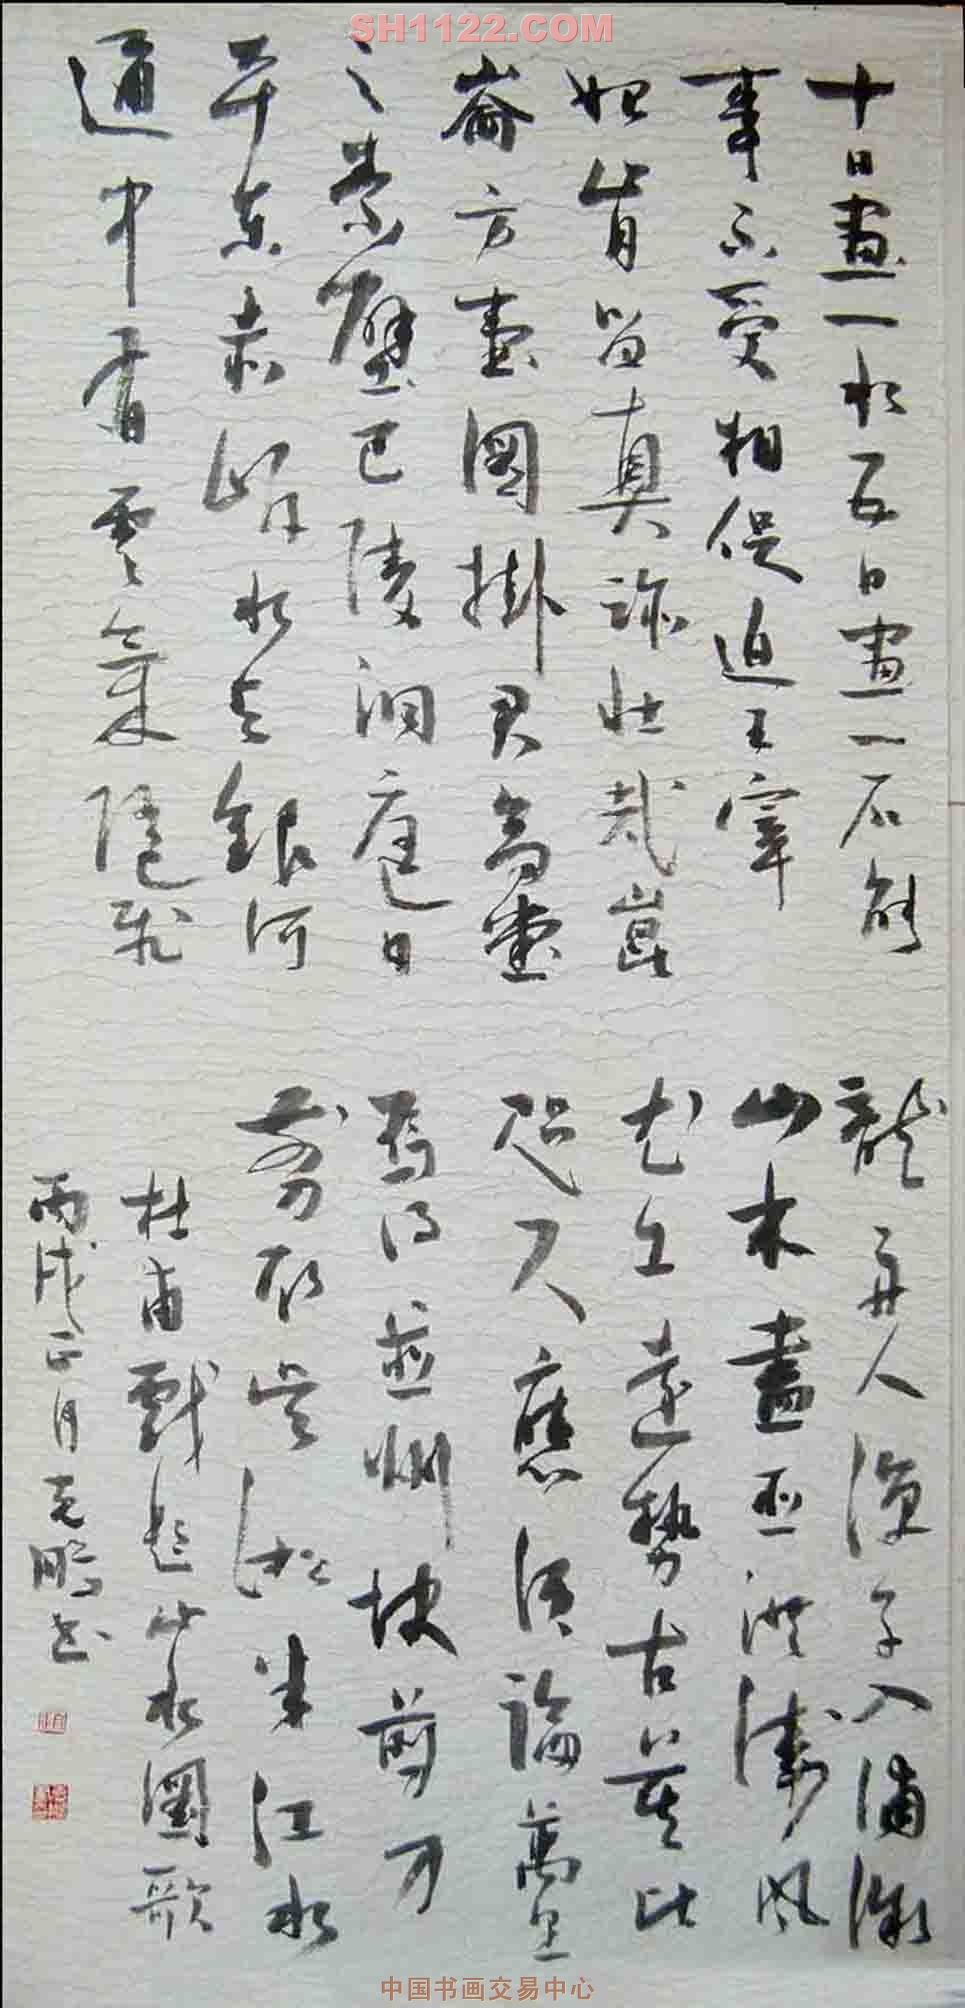 SH1122.COM
十日畫一水五日畫一石能
事不受相促迫王宰
始肯留真跡壯哉崑
崙方壺圖掛君高堂
之素壁巴陵洞庭日
本東赤岸水與銀河
通中有雲氣隨飛
龍舟人漁子入浦漵
山木盡亞洪濤風
尤工遠勢古莫比
咫尺應須論萬里
焉得並州快剪刀
剪取吳淞半江水
杜甫戲題山水圖歌
丙戌正月克鵬書
中国书画交易中心